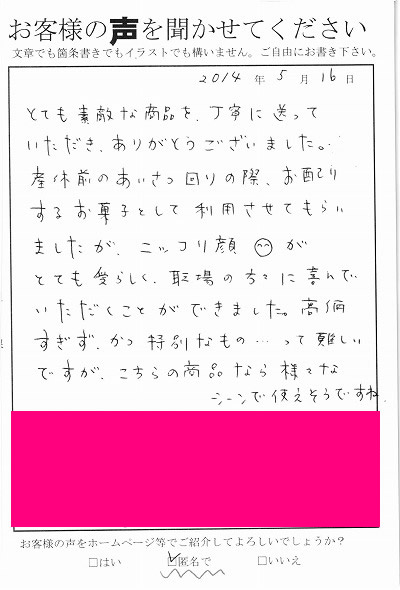 お客様の声を聞かせてください
文章でも箇条書きでもイラストでも構いません。ご自由にお書き下さい。
2014年5月16日
とても素敵な商品を、丁寧に送って
いただき、ありがとうございました。
産休前のあいさつ回りの際、お配り
するお菓子として利用させてもらい
ましたが、ニッコリ顔 が
とても愛らしく、職場の方々に喜んで
いただくことができました。高価
すぎず、かつ特別なもの…って難しい
ですが、こちらの商品なら様々な
シーンで使えそうですね。
お客様の声をホームページ等でご紹介してよろしいでしょうか？
□はい ☑匿名で □いいえ